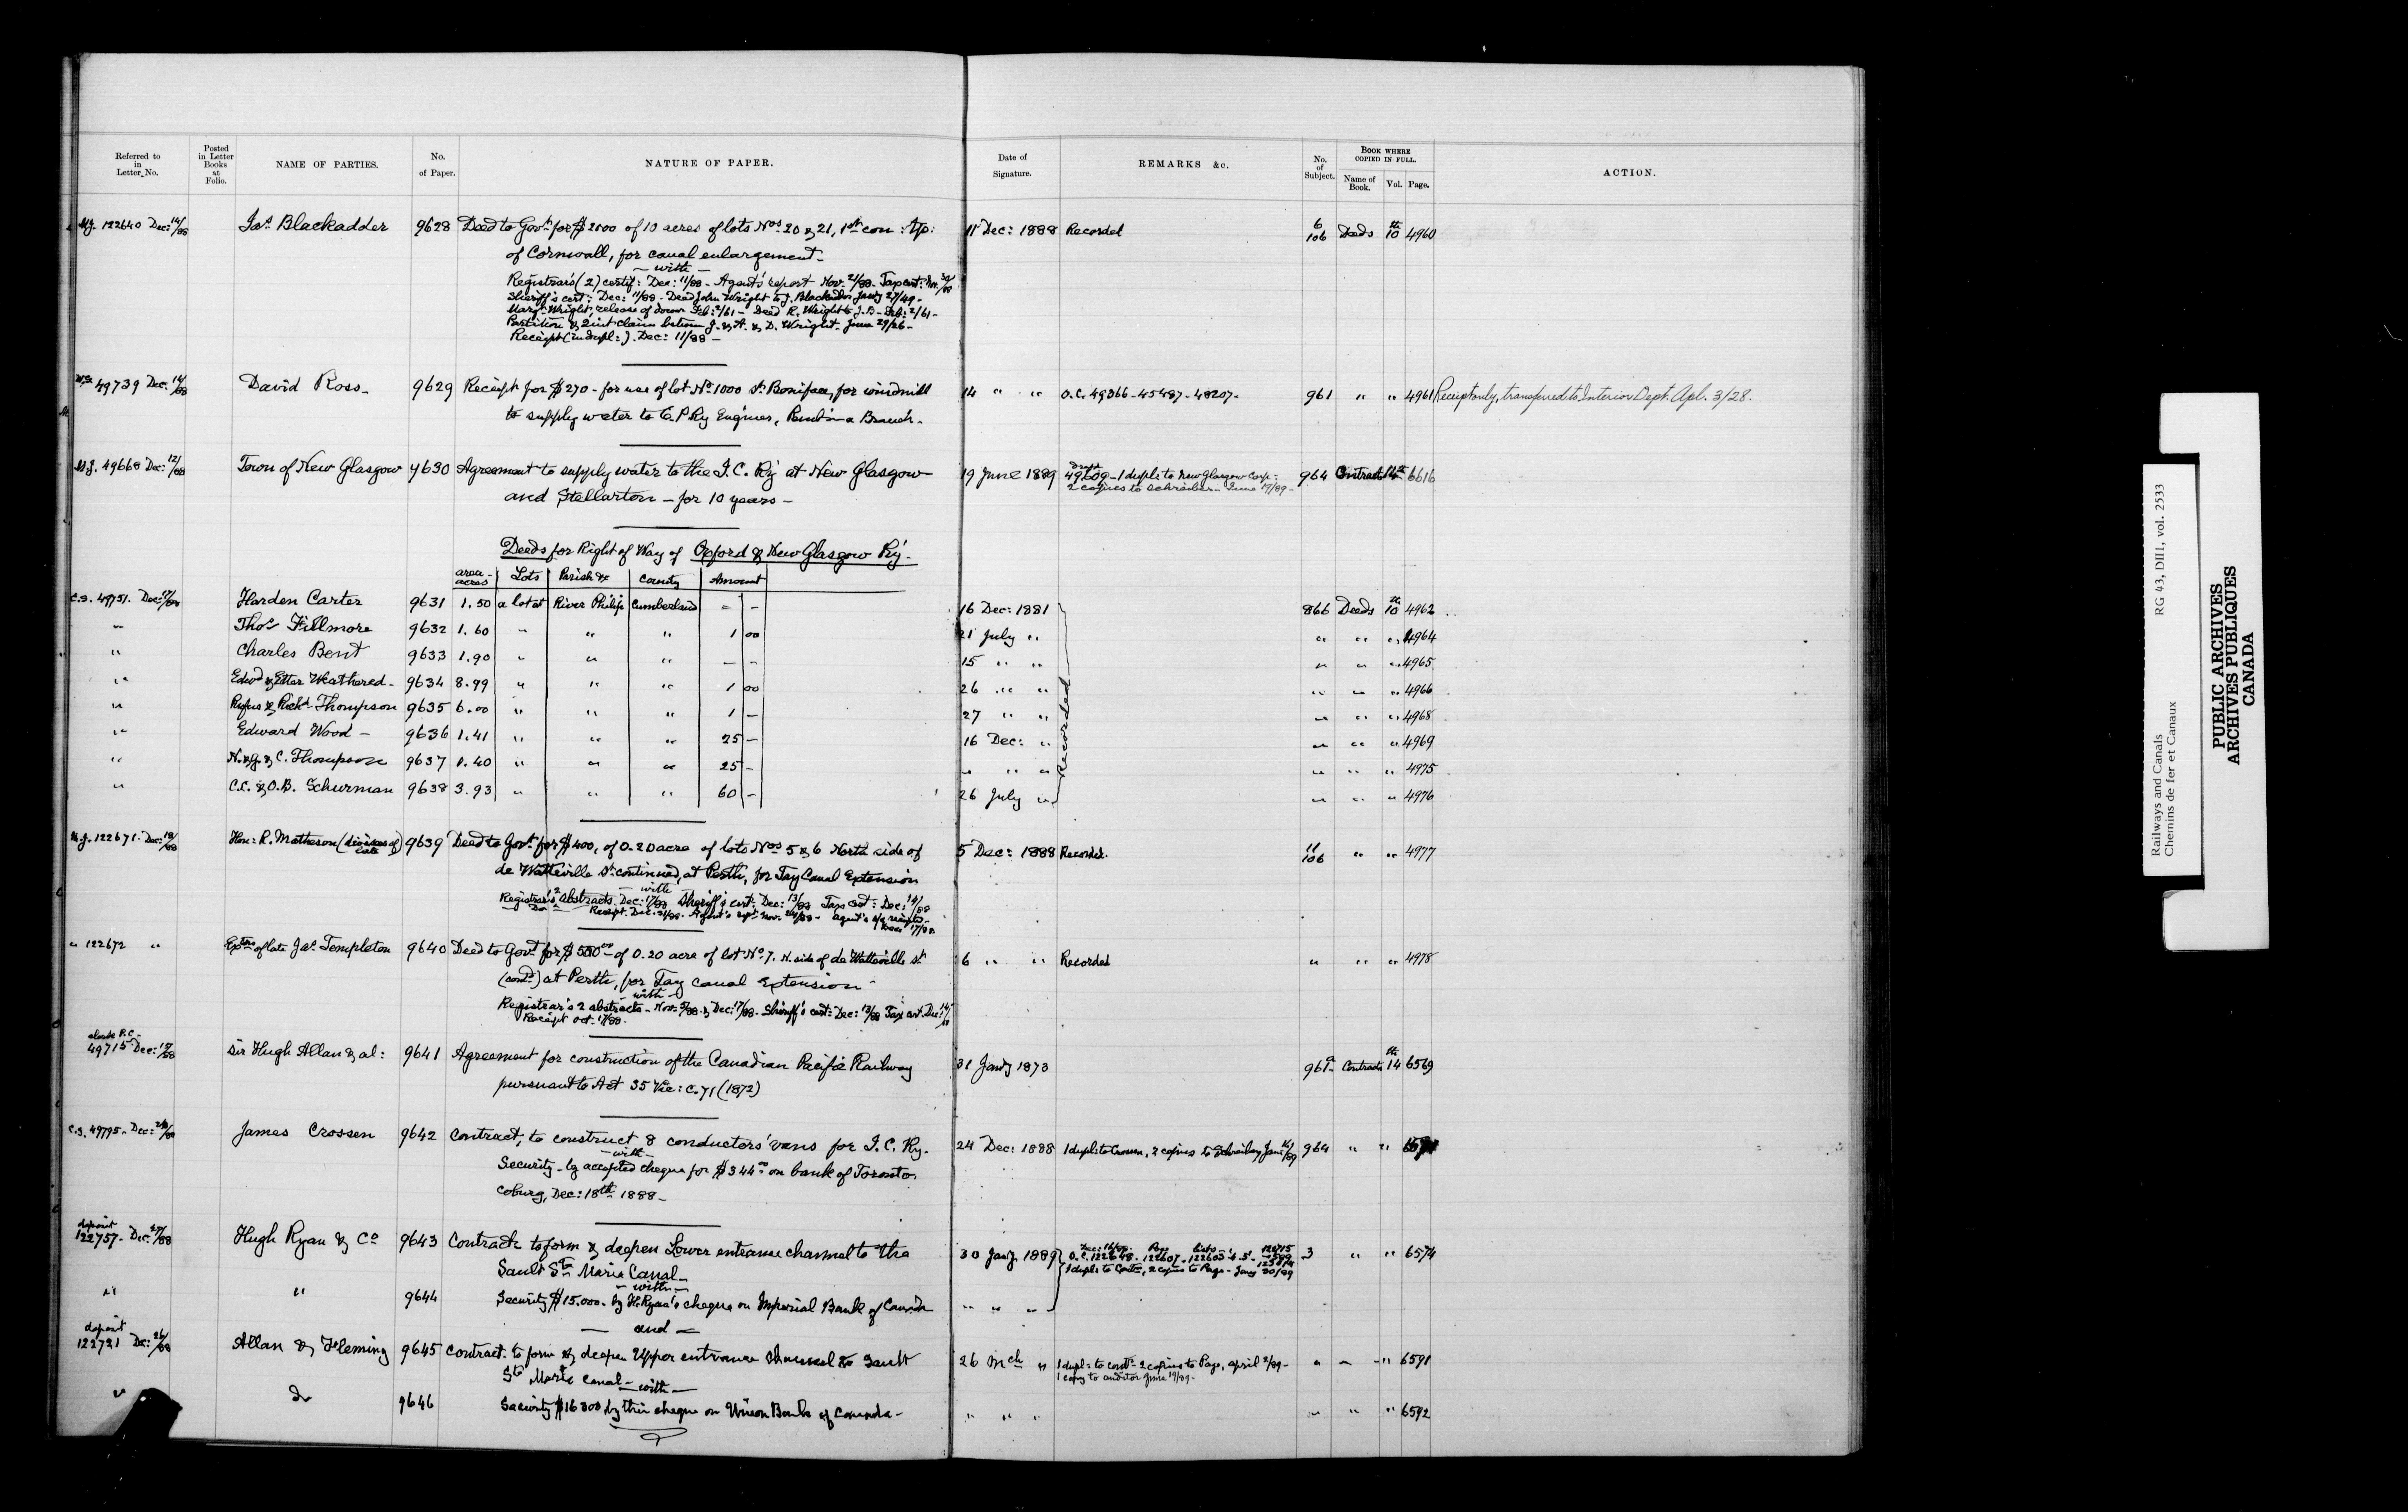 Referred to in Letter No.
Posted in Letter Books at Folio.
NAME OF PARTIES.
No. of Paper.
NATURE OF PAPER.
Date of Signature.
REMARKS &c.
No. of Subject.
BOOK WHERE COPIED IN FULL.
Name of Book. Vol. Page.
ACTION.
122640 Dec: 14/88 Jas. Blackadder 9628 Deed to Govt. for $2000 of 10 acres of lots Nos 20 & 21, 1st con: Tp: 11 Dec: 1888 Recorded 6/106 Deeds 10th 4960
of Cornwall, for canal enlargement -
- with -
Registrar's (2) certif: Dec: 11/88 - Agent's report Nov. 21/88 - Tax cert: Nov.
Sheriff's cert: Dec: 11/88 - Deed John Wright to J. Blackadder Jany 27/49 -
Margt. Wright, release of dower Feb: 2/61 - Deed R. Wright to J. B - Feb: 2/61 -
Partition & Quit claim between J. & A. & D. Wright - June 29/26 -
Receipt (in dupl:). Dec: 11/88 -
49739 Dec. 14/88 David Ross - 9629 Receipt for $270 - for use of lot No. 1000 St. Boniface, for windmill 14 " " O.C. 49366 - 45487 - 48207 - 961 " " 4961 Receipt only, transferred to Interior Dept. Apl. 3/28.
to supply water to C. P. Ry Engines, Pembina Branch.
49668 Dec: 12/88 Town of New Glasgow 9630 Agreement to supply water to the I. C. Ry at New Glasgow 19 June 1889 draft 49609 - 1 dupl: to New Glasgow Corp: 964 Contracts 14th 6616
and Stellarton - for 10 years - 2 copies to Schreiber - June 19/89 -
Deeds for Right of Way of Oxford & New Glasgow Ry -
area - acres Lots Parish &c County Amount
C.S. 49751. Dec: 17/88 Harden Carter 9631 1.50 a lot at River Philip Cumberland - - 16 Dec: 1881 866 Deeds 10th 4962
" Thos. Fillmore 9632 1.60 " " " 1 00 21 July " " " " 4964
" Charles Bent 9633 1.90 " " " - - 15 " " " " " 4965
" Edwd & Etter Weathered - 9634 8.99 " " " 1 00 26 " " " " " 4966
" Rufus & Richd Thompson 9635 6.00 " " " 1 - 27 " " " " " 4968
" Edward Wood - 9636 1.41 " " " 25 - 16 Dec: " " " " 4969
" N. & J. & C. Thompson 9637 0.40 " " " 25 - " " " " " " 4975
" C.C. & O.B. Schurman 9638 3.93 " " " 60 - 26 July " " " " 4976
Recorded
122671. Dec: 18/88 Hon: R. Matheson (devisees of late) 9639 Deed to Govt. for $400, of 0.20 acre of lots Nos 5 & 6 North side of 5 Dec: 1888 Recorded. 11/106 " " 4977
de Watteville St. continued, at Perth, for Tay Canal Extension
- with -
Registrar's 2 abstracts. Dec: 17/88 Sheriff's cert: Dec: 13/88 Tax cert: Dec: 14/88
" 122672 " Extrs of late Jas. Templeton 9640 Deed to Govt for $500 00 - of 0.20 acre of lot No. 7. N. side of de Watteville St. 6 " " Recorded " " " 4978
(contd) at Perth, for Tay Canal Extension -
- with -
Registrar's 2 abstracts - Nov: 5/88 & Dec: 17/88 - Sheriff's cert: Dec: 13/88 Tax cert. Dec: 14/88
Receipt Oct. 17/88.
49715 Dec: 15/88 Sir Hugh Allan & al: 9641 Agreement for construction of the Canadian Pacific Railway 31 Jany 1873 961a Contracts 14th 6569
pursuant to Act 35 Vic: c. 71 (1872)
C.S. 49795 - Dec: 20/88 James Crossen 9642 Contract, to construct 8 conductors' vans for I. C. Ry. 24 Dec: 1888 1 dupl: to Crossen, 2 copies to Schreiber, Jan: 14/89 964 " "
- with -
Security - by accepted cheque for $344 00 on bank of Toronto,
Coburg, Dec: 18th 1888 -
deposit 122757 - Dec: 27/88 Hugh Ryan & Co 9643 Contract to form & deepen Lower entrance channel to the 30 Jany 1889 O.C. 122648. 122607. 3 " " 6574
Sault Ste Marie Canal - 1 dupl: to Contr, 2 copies to Page - Jany 30/89
- with -
" " 9644 Security $15.000 - by H. Ryan's cheque on Imperial Bank of Canada " " "
- and -
deposit 122721 Dec: 26/88 Allan & Fleming 9645 Contract: to form & deepen Upper entrance channel to Sault 26 Mch " 1 dupl: to contr - 2 copies to Page, April 2/89 - " " " 6591
Ste Marie Canal - with - 1 copy to auditor June 19/89 -
" do 9646 Security $16300, by their cheque on Union Bank of Canada - " " " " " " 6592
Railways and Canals RG 43, DII1, vol. 2533
Chemins de fer et Canaux
PUBLIC ARCHIVES
ARCHIVES PUBLIQUES
CANADA